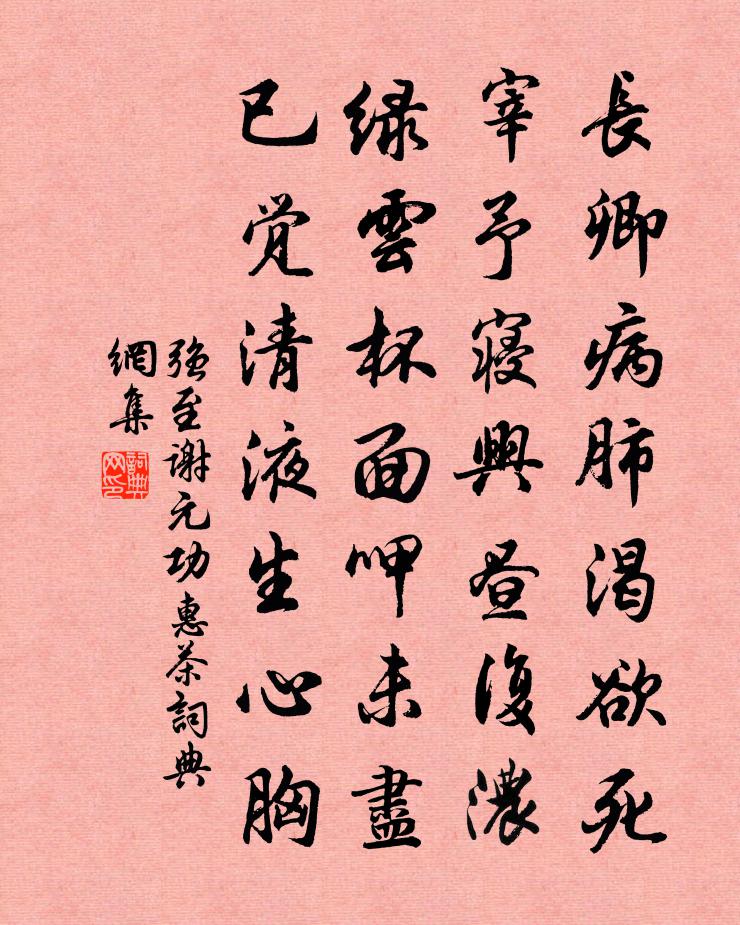 長卿病肺渴欲死
宰予寢興昼復濃
緑雲杯面呷未盡
已覚清液生心胸
強至謝元功惠茶詞典
網集
詞典
网印